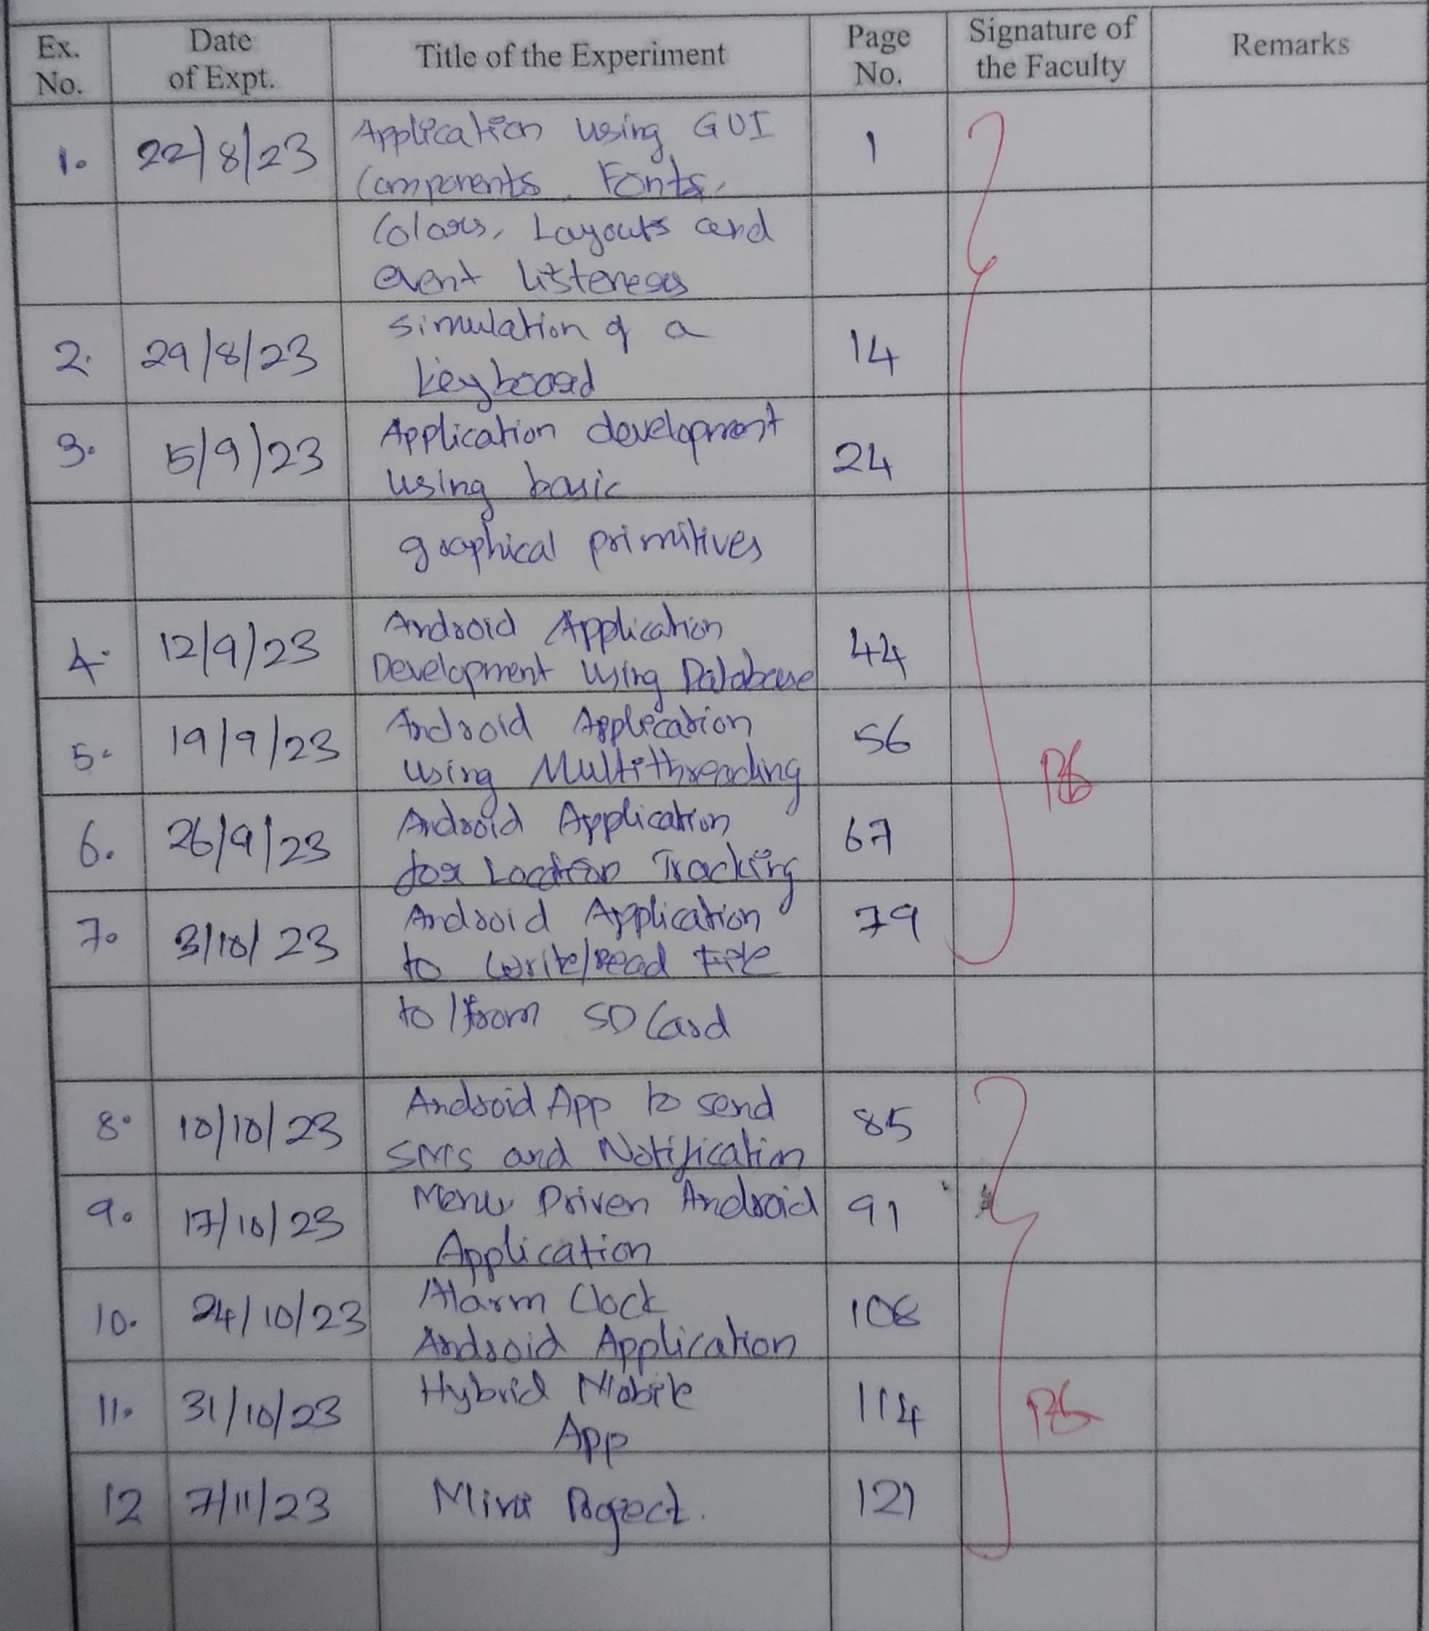 Ex. No. Date of Expt. Title of the Experiment Page No. Signature of the Faculty Remarks
1. 22/8/23 Application using GUI 1
Components, Fonts,
Colors, Layouts and
event listeners
2. 29/8/23 Simulation of a 14
keyboard
3. 5/9/23 Application development 24
using basic
graphical primitives
4. 12/9/23 Android Application 44
Development Using Database
5. 19/9/23 Android Application 56
using Multithreading
6. 26/9/23 Android Application 67
for Location Tracking
7. 3/10/23 Android Application 79
to write/read File
to/from SD Card
8. 10/10/23 Android App to send 85
SMS and Notification
9. 17/10/23 Menu Driven Android 91
Application
10. 24/10/23 Alarm Clock
Android Application
11. 31/10/23 Hybrid Mobile 114
App
12 7/11/23 Mini Project. 121